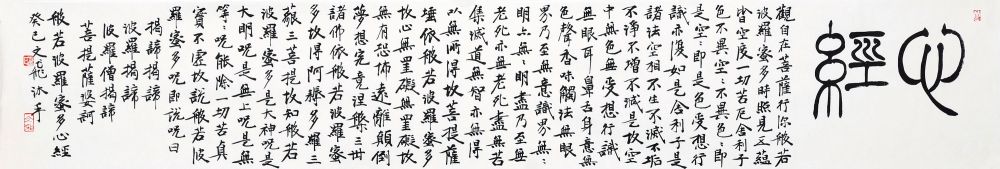 心經
觀自在菩薩行深般若
波羅蜜多時照見五蘊
皆空度一切苦厄舍利子
色不異空〻不異色〻即
是空〻即是色受想行
識亦復如是舍利子是
諸法空相不生不滅不垢
不淨不增不減是故空
中無色無受想行識
無眼耳鼻舌身意無
色聲香味觸法無眼
界乃至無意識界無〻
明亦無〻明盡乃至無
老死亦無老死盡無苦
集滅道無智亦無得
以無所得故菩提薩
埵依般若波羅蜜多
故心無罣礙無罣礙故
無有恐怖遠離顛倒
夢想究竟涅槃三世
諸佛依般若波羅蜜
多故得阿耨多羅三
藐三菩提故知般若
波羅蜜多是大神呪是
大明呪是無上呪是無
等〻呪能除一切苦真
實不虛故說般若波
羅蜜多呪即說呪曰
揭諦揭諦
波羅揭諦
波羅僧揭諦
菩提薩婆訶
般若波羅蜜多心經
癸巳文沐手